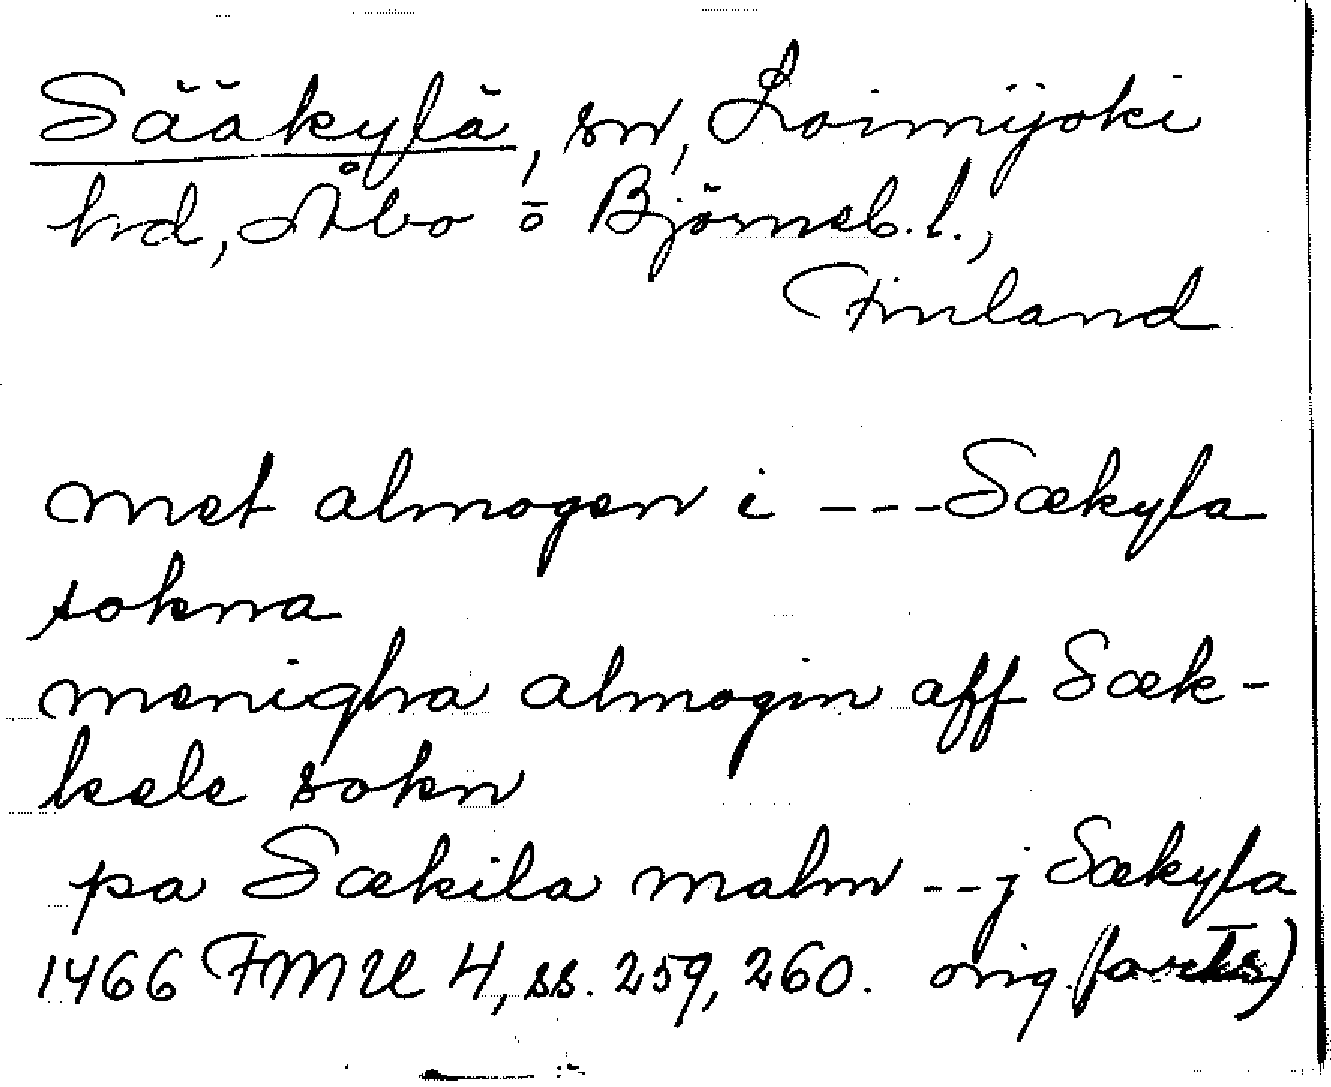 Sääkylä, sn, Loimijoki
hd, Åbo o Björneb. l.,
Finland
met almogen i --- Sækyla
sokna
menigha almogin aff Sæk-
kele sokn
pa Sækila malm -- j Sækyla
1466 FMU 4, ss. 259, 260. orig